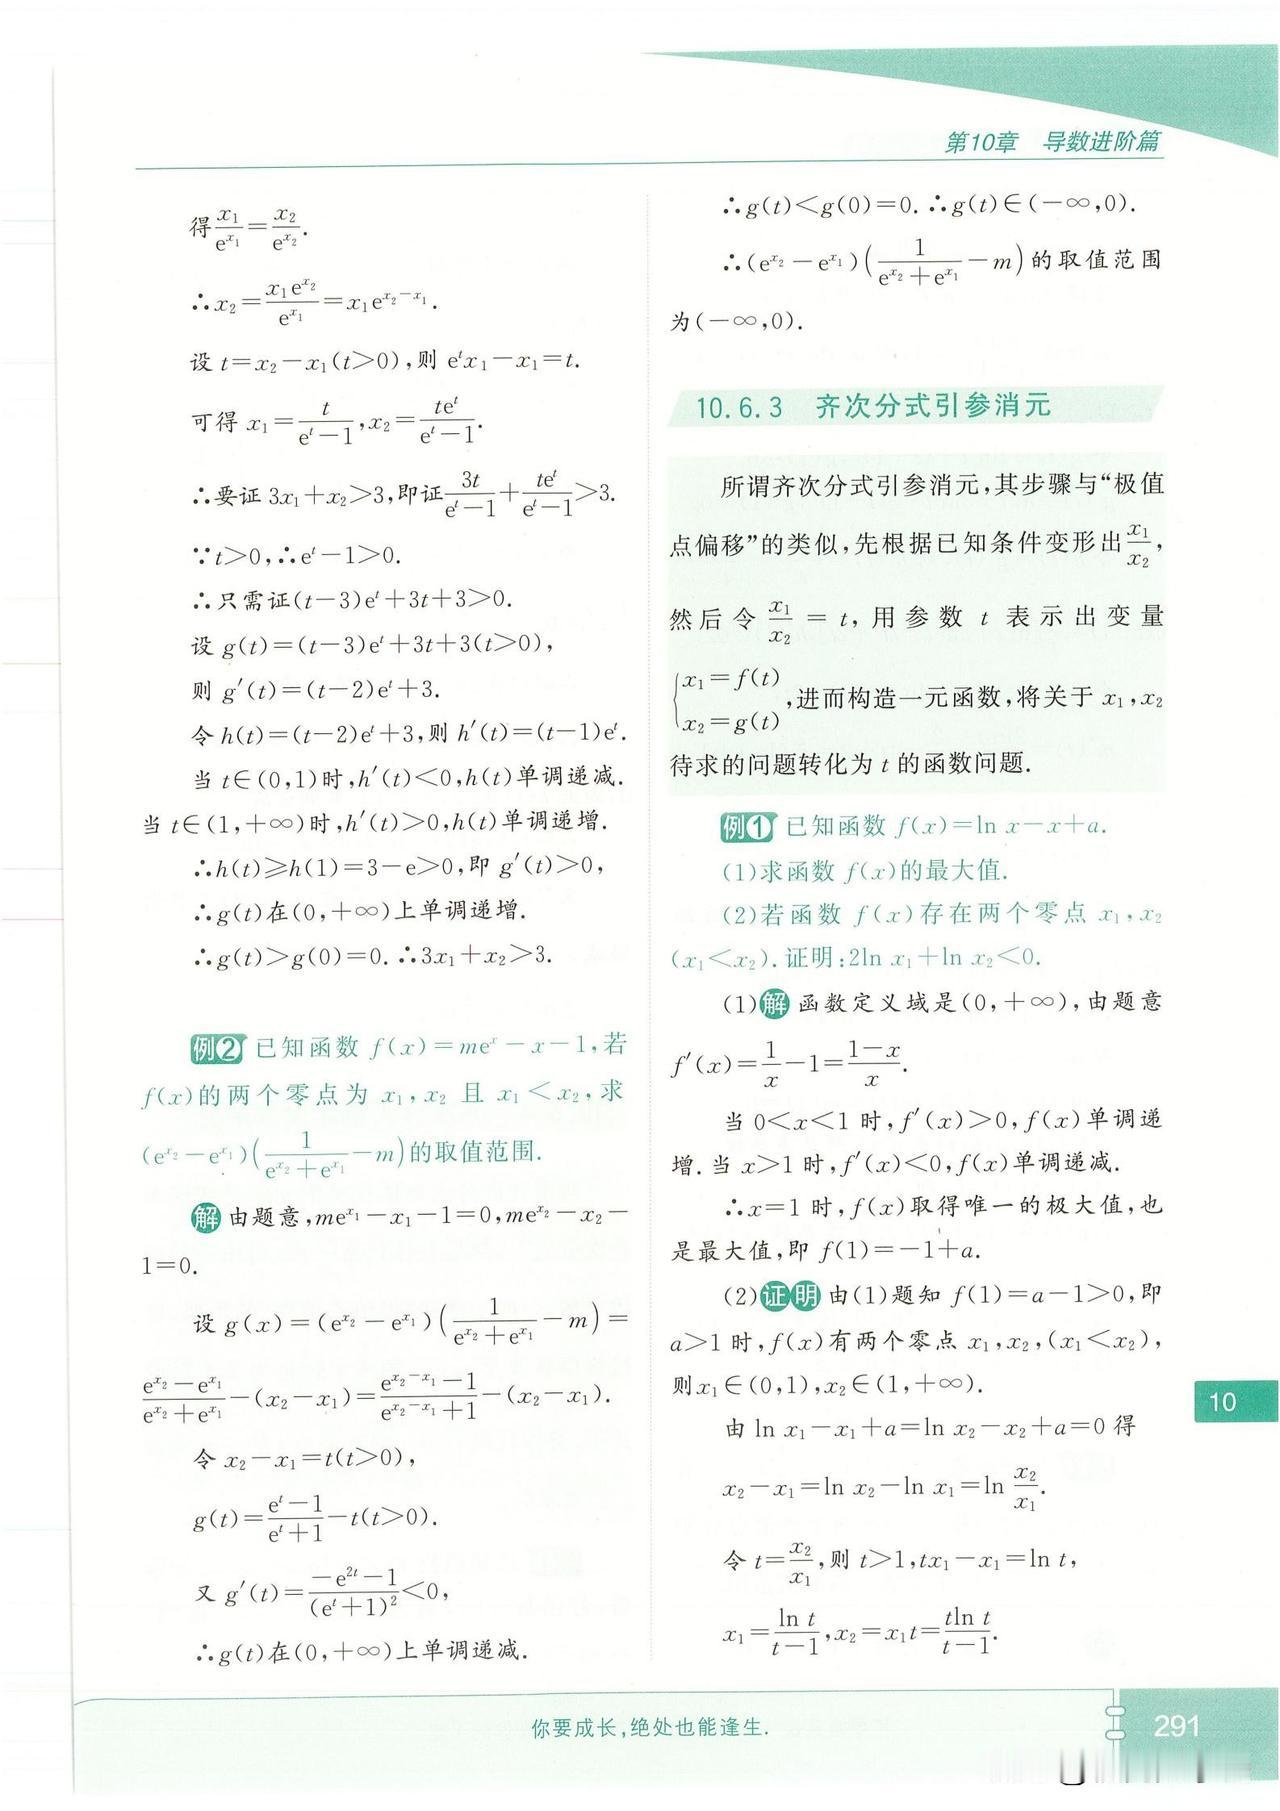 第10章 导数进阶篇
得x₁/e^{x₁}=x₂/e^{x₂}.
∴x₂=x₁e^{x₂}/e^{x₁}=x₁e^{x₂-x₁}.
设t=x₂-x₁(t>0),则e^t x₁-x₁=t.
可得x₁=t/(e^t-1),x₂=te^t/(e^t-1).
∴要证3x₁+x₂>3,即证3t/(e^t-1)+te^t/(e^t-1)>3.
∵t>0,∴e^t-1>0.
∴只需证(t-3)e^t+3t+3>0.
设g(t)=(t-3)e^t+3t+3(t>0),
则g′(t)=(t-2)e^t+3.
令h(t)=(t-2)e^t+3,则h′(t)=(t-1)e^t.
当t∈(0,1)时,h′(t)<0,h(t)单调递减.
当t∈(1,+∞)时,h′(t)>0,h(t)单调递增.
∴h(t)≥h(1)=3-e>0,即g′(t)>0,
∴g(t)在(0,+∞)上单调递增.
∴g(t)>g(0)=0.∴3x₁+x₂>3.
例2 已知函数f(x)=me^x-x-1,若
f(x)的两个零点为x₁,x₂且x₁<x₂,求
(e^{x₂}-e^{x₁})(1/(e^{x₂}+e^{x₁})-m)的取值范围.
解 由题意,me^{x₁}-x₁-1=0,me^{x₂}-x₂-
1=0.
设g(x)=(e^{x₂}-e^{x₁})(1/(e^{x₂}+e^{x₁})-m)=
(e^{x₂}-e^{x₁})/(e^{x₂}+e^{x₁})-(x₂-x₁)=(e^{x₂-x₁}-1)/(e^{x₂-x₁}+1)-(x₂-x₁).
令x₂-x₁=t(t>0),
g(t)=(e^t-1)/(e^t+1)-t(t>0).
又g′(t)=(-e^{2t}-1)/(e^t+1)²<0,
∴g(t)在(0,+∞)上单调递减.
∴g(t)<g(0)=0.∴g(t)∈(-∞,0).
∴(e^{x₂}-e^{x₁})(1/(e^{x₂}+e^{x₁})-m)的取值范围
为(-∞,0).
10.6.3 齐次分式引参消元
所谓齐次分式引参消元,其步骤与“极值
点偏移”的类似,先根据已知条件变形出x₁/x₂,
然后令x₁/x₂=t,用参数t表示出变量
{x₁=f(t)
x₂=g(t),进而构造一元函数,将关于x₁,x₂
待求的问题转化为t的函数问题.
例1 已知函数f(x)=ln x-x+a.
(1)求函数f(x)的最大值.
(2)若函数f(x)存在两个零点x₁,x₂
(x₁<x₂).证明:2ln x₁+ln x₂<0.
(1)解 函数定义域是(0,+∞),由题意
f′(x)=1/x-1=(1-x)/x.
当0<x<1时,f′(x)>0,f(x)单调递
增.当x>1时,f′(x)<0,f(x)单调递减.
∴x=1时,f(x)取得唯一的极大值,也
是最大值,即f(1)=-1+a.
(2)证明 由(1)题知f(1)=a-1>0,即
a>1时,f(x)有两个零点x₁,x₂,(x₁<x₂),
则x₁∈(0,1),x₂∈(1,+∞).
由ln x₁-x₁+a=ln x₂-x₂+a=0得
x₂-x₁=ln x₂-ln x₁=ln x₂/x₁.
令t=x₂/x₁,则t>1,tx₁-x₁=ln t,
x₁=ln t/(t-1),x₂=x₁t=tln t/(t-1).
10
你要成长,绝处也能逢生.
291